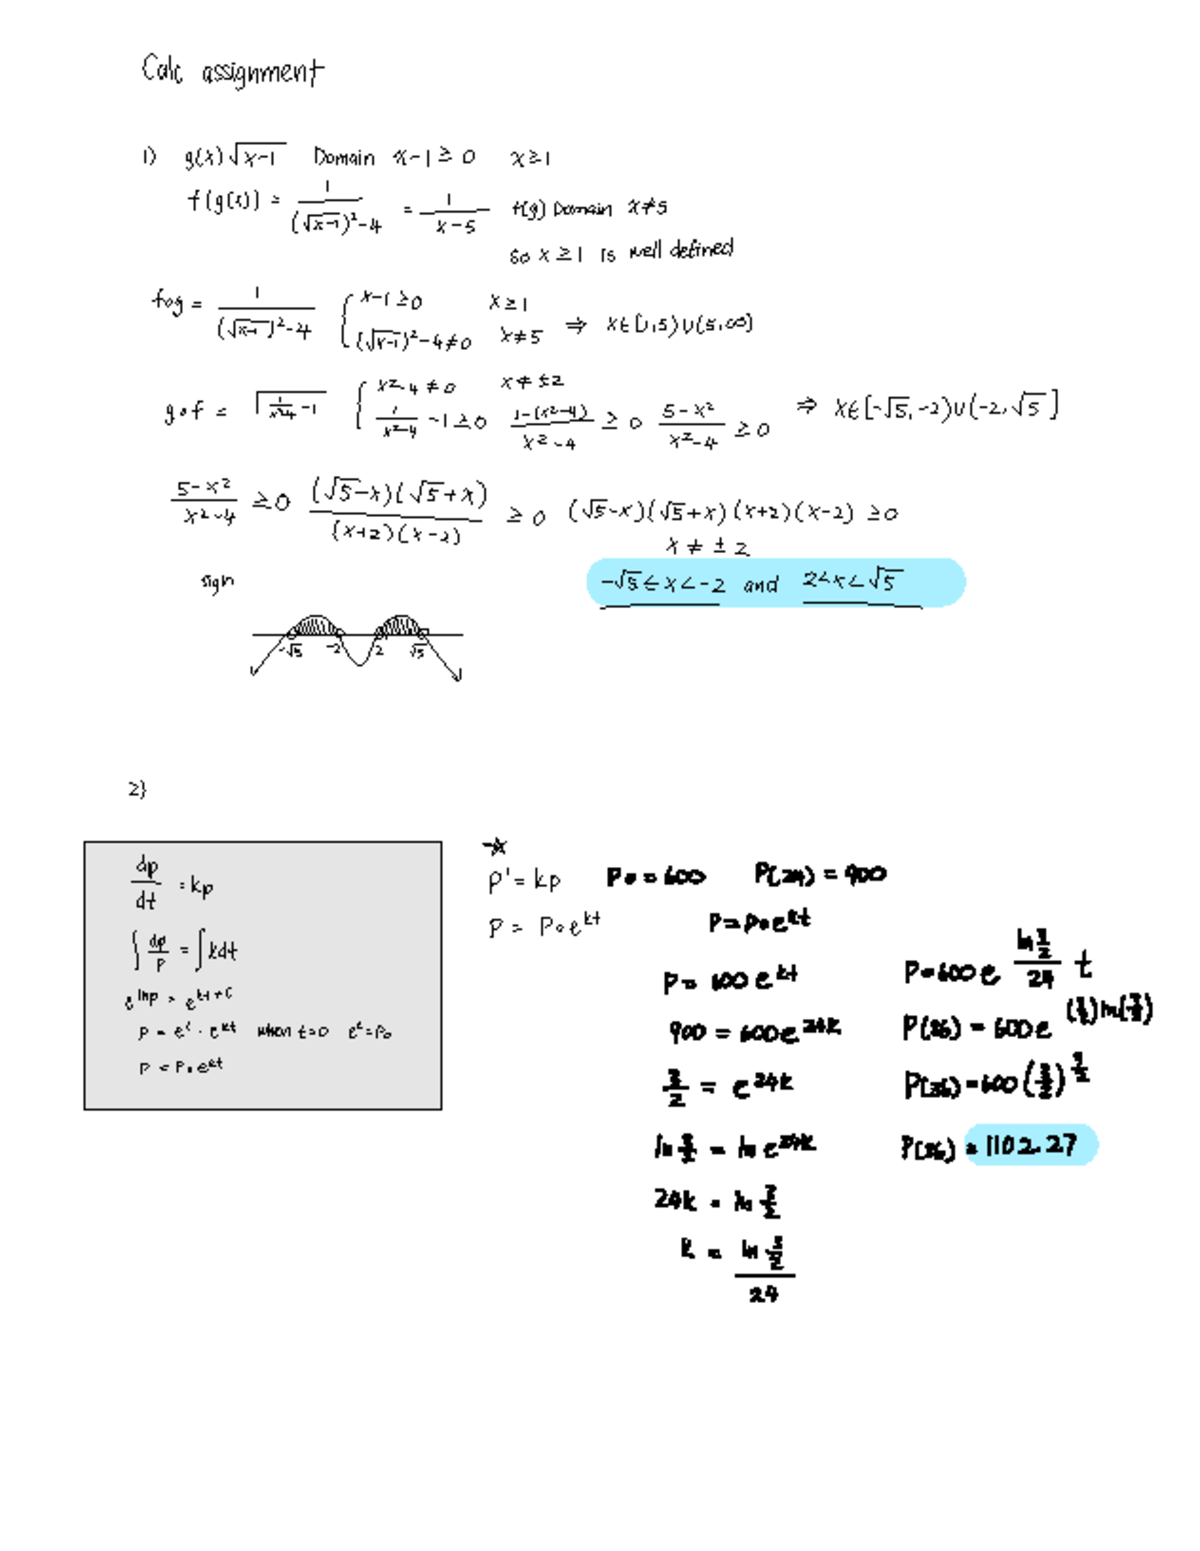 Calc assignment
1) g(x)√x-1 Domain x-1≥0 x≥1
f(g(x)) = 1/((√x-1)²-4) = 1/(x-5) f(g) Domain x≠5
so x≥1 is well defined
fog = 1/((√x-1)²-4) { x-1≥0 x≥1
(√x-1)²-4≠0 x≠5 ⇒ x∈[1,5)∪(5,∞)
gof = √(1/(x²-4) -1) { x²-4≠0 x≠±2
1/(x²-4) -1≥0 (1-(x²-4))/(x²-4) ≥0 (5-x²)/(x²-4) ≥0 ⇒ x∈[-√5,-2)∪(-2,√5]
(5-x²)/(x²-4) ≥0 ((√5-x)(√5+x))/((x+2)(x-2)) ≥0 (√5-x)(√5+x)(x+2)(x-2) ≥0
x≠±2
sign -√5≤x<-2 and 2<x<√5
-√5 -2 2 √5
2)
dp/dt = kp
∫dp/p = ∫kdt
e^lnp = e^kt+c
p = e^c · e^kt when t=0 e^c=P₀
P = P₀e^kt
P' = kp P₀=600 P(24)=900
P = P₀e^kt P=P₀e^kt
P= 600e^kt
900 = 600e^24k
3/2 = e^24k
ln 3/2 = ln e^24k
24k = ln 3/2
k = (ln 3/2)/24
P=600e^((ln 3/2)/24) t
P(36) = 600e^(3/2)ln(3/2)
P(36)=600(3/2)^3/2
P(36) = 1102.27